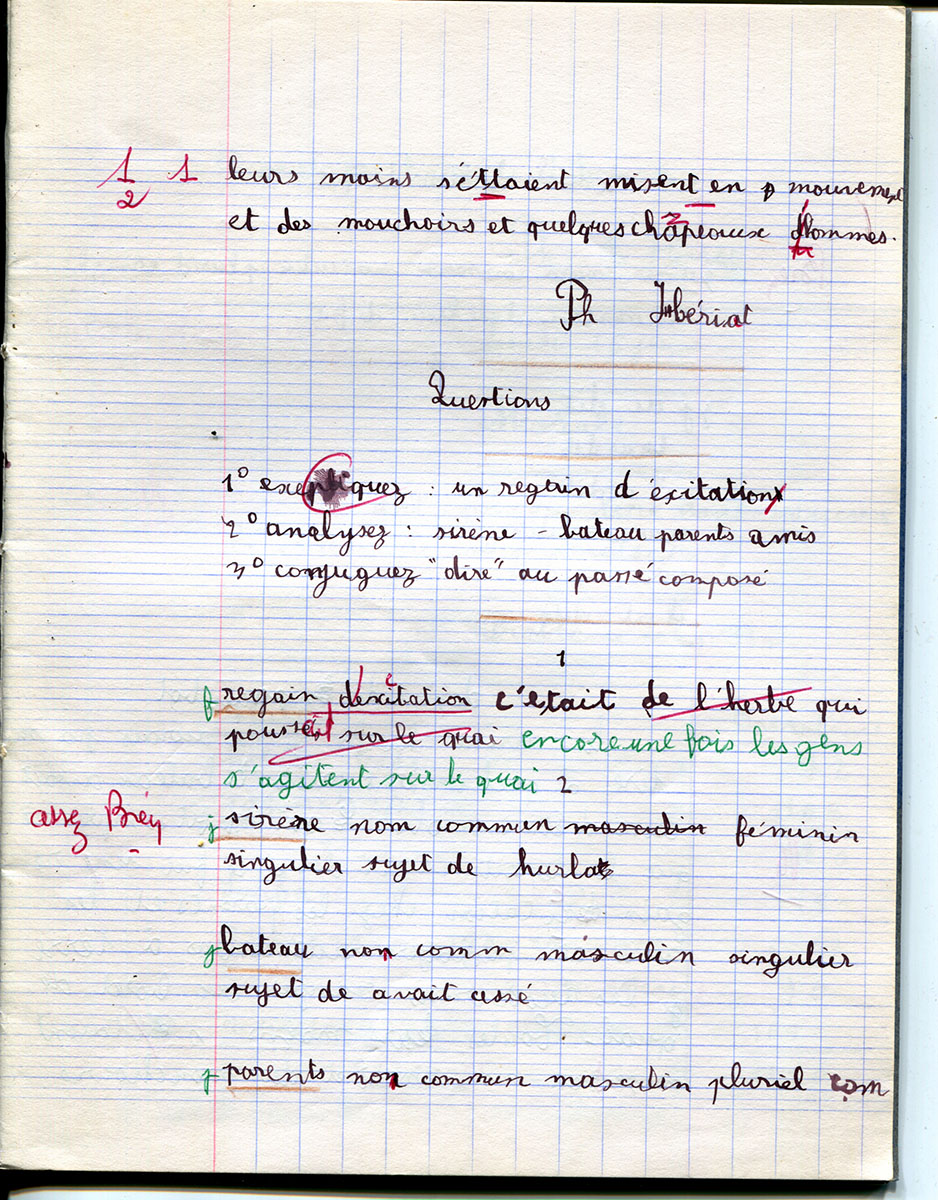 1/2 1 leurs moins s'éttaient misent en mouvement
et des mouchoirs et quelques chapeaux d'hommes.
Ph
Questions
1° : un regain d'éxitation
2° analysez : sirène - bateau parents amis
3° conjuguez "dire" au passé composé
1
f regain d'exitation c'était de l'herbe qui
sur le quai encore une fois les gens
s'agitent sur le quai 2
assez
j sirène nom commun masculin féminin
singulier sujet de hurla
j bateau non comm masculin singulier
sujet de avait cessé
j parents non commun masculin pluriel com